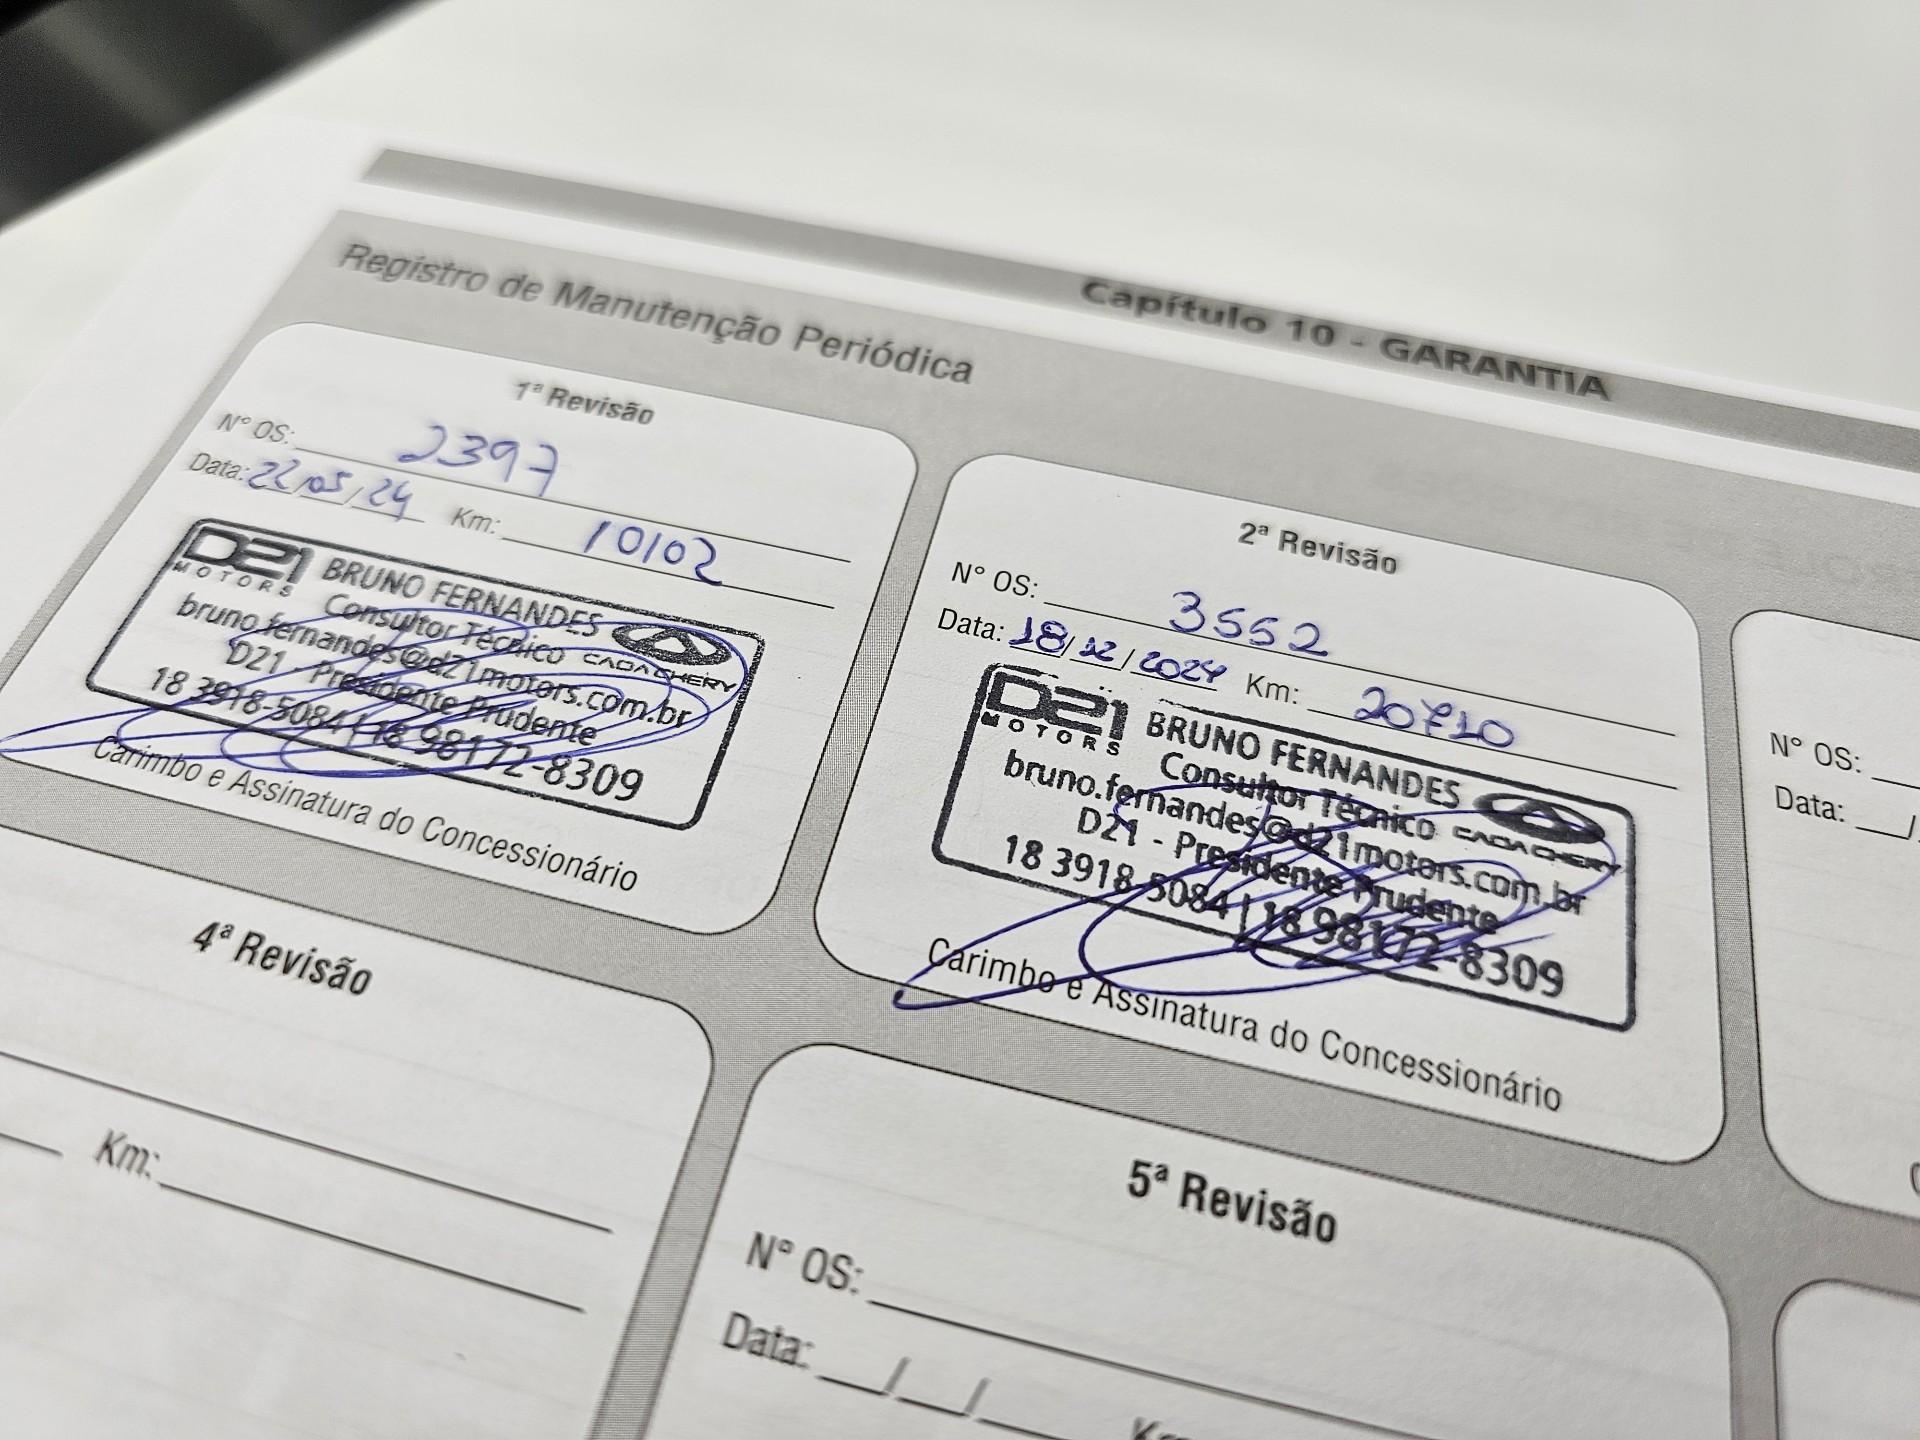 Capítulo 10 - GARANTIA
Registro de Manutenção Periódica
1ª Revisão
N° OS: 2397
Data: 22/05/24 Km: 10102
D21 MOTORS
BRUNO FERNANDES
Consultor Técnico
CAOA CHERY
bruno.fernandes@d21motors.com.br
D21 - Presidente Prudente
18 3918-5084 | 18 98172-8309
Carimbo e Assinatura do Concessionário
2ª Revisão
N° OS: 3552
Data: 18/12/2024 Km: 20710
D21 MOTORS
BRUNO FERNANDES
Consultor Técnico
CAOA CHERY
bruno.fernandes@d21motors.com.br
D21 - Presidente Prudente
18 3918-5084 | 18 98172-8309
Carimbo e Assinatura do Concessionário
N° OS:
Data: __/
4ª Revisão
Km:
5ª Revisão
N° OS:
Data: __/__/__